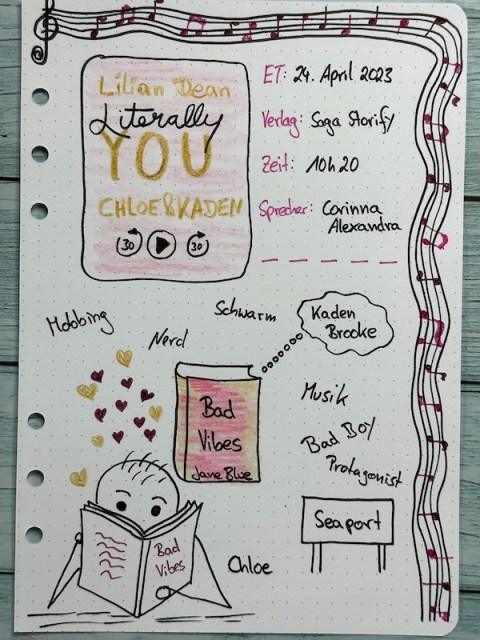 Lilian Dean
Literally
YOU
CHLOE&KADEN
30 30
ET: 24. April 2023
Verlag: Saga Storify
Zeit: 10h20
Sprecher: Corinna
Alexandra
Mobbing
Nerd
Schwarm
Kaden
Brooke
Bad
Vibes
Jane Blue
Musik
Bad Boy
Protagonist
Seaport
Bad
Vibes
Chloe